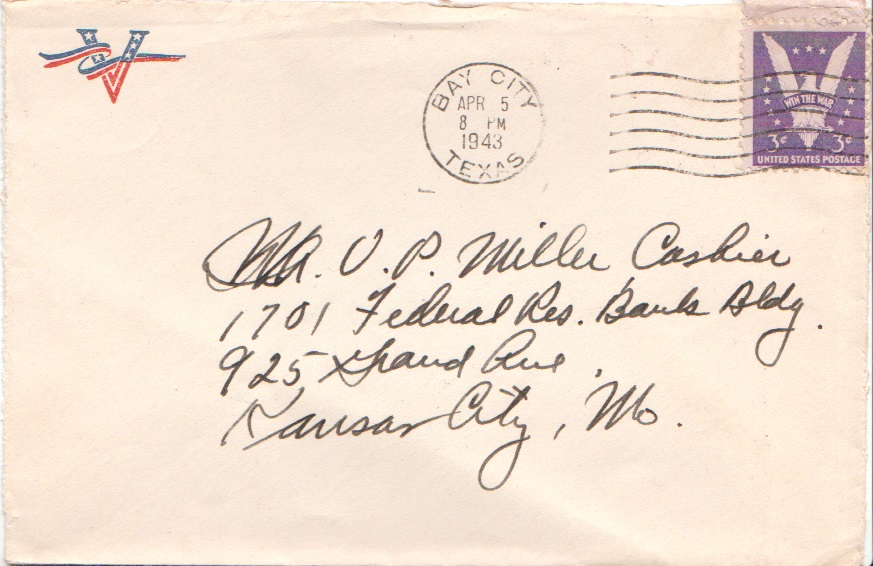 V
BAY CITY
APR 5
8 PM
1943
TEXAS
WIN THE WAR
3¢ 3¢
UNITED STATES POSTAGE
Mr. V. P. Miller Cashier
1701 Federal Res. Bank Bldg.
925 Grand Ave.
Kansas City, Mo.